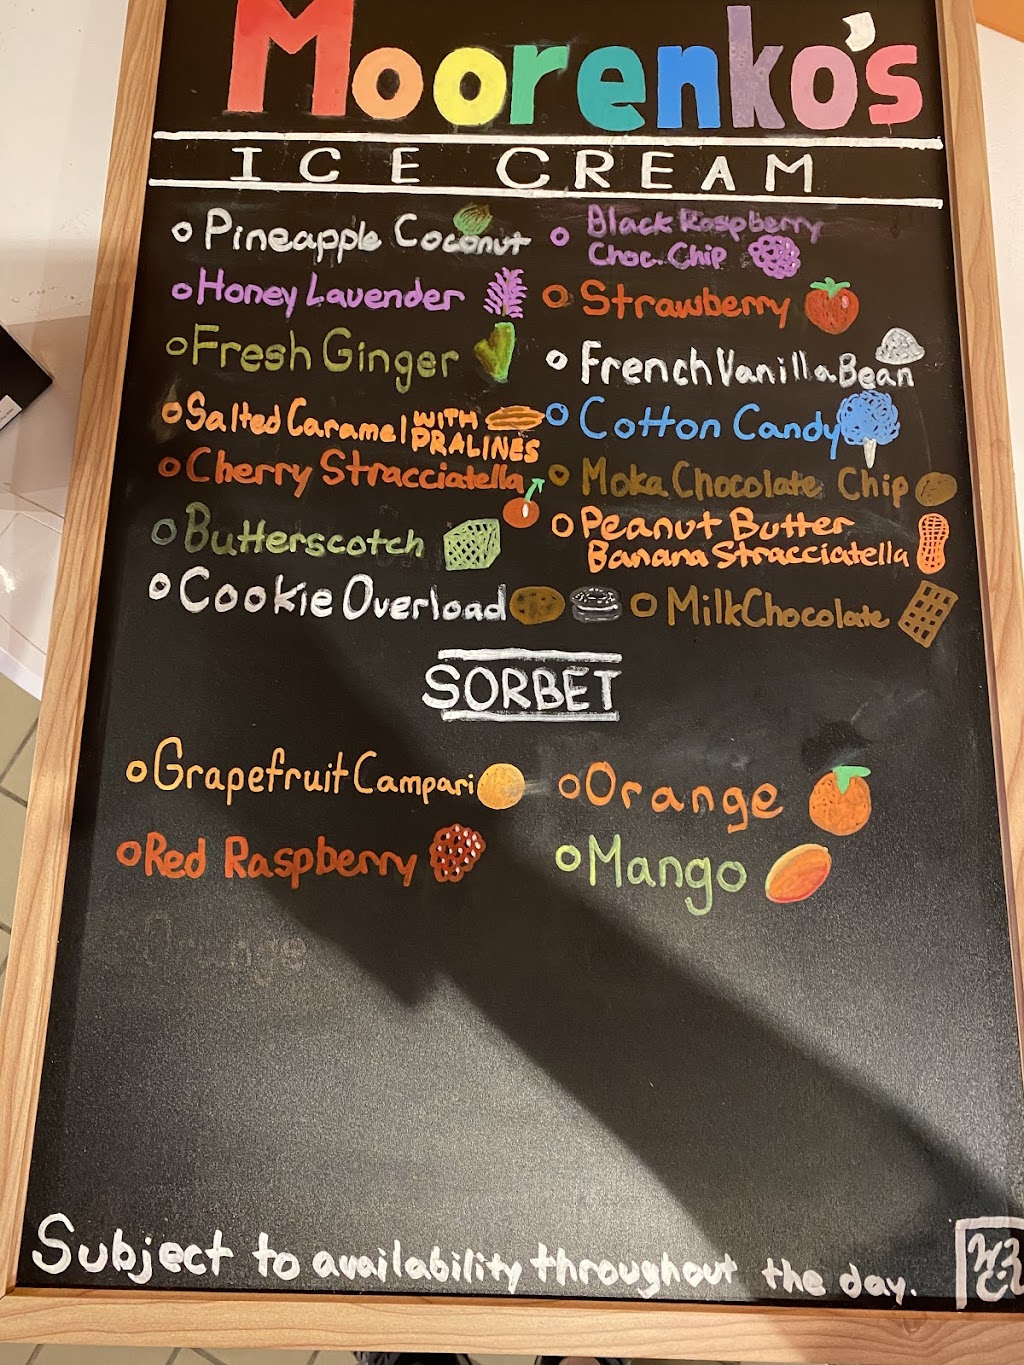 Moorenko's
ICE CREAM
Pineapple Coconut
Honey Lavender
Fresh Ginger
Salted Caramel WITH PRALINES
Cherry Stracciatella
Butterscotch
Cookie Overload
Black Raspberry
Choc. Chip
Strawberry
French Vanilla Bean
Cotton Candy
Moka Chocolate Chip
Peanut Butter
Banana Stracciatella
Milk Chocolate
SORBET
Grapefruit Campari
Red Raspberry
Orange
Mango
Orange
Subject to availability throughout the day.